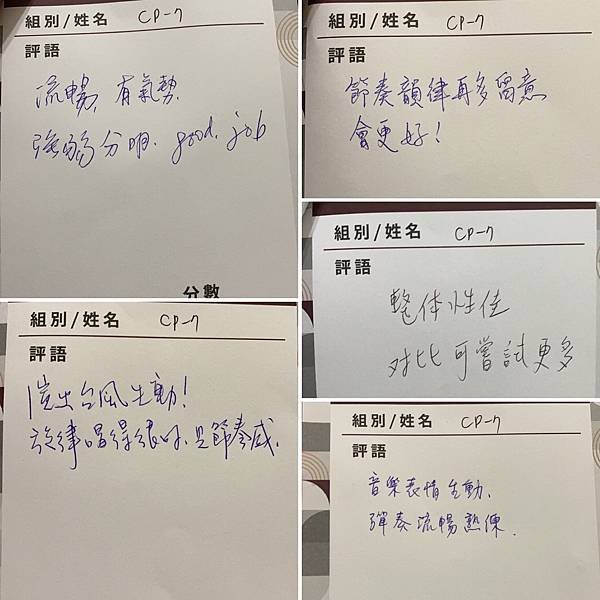 組別/姓名 CP-7
評語
流暢,有氣勢.
強弱分明. good job
分數
組別/姓名 CP-7
評語
節奏韻律再多留意
會更好!
組別/姓名 CP-7
評語
整体性佳
对比可嘗試更多
組別/姓名 CP-7
評語
台風生動!
旋律唱得很好,節奏感.
組別/姓名 CP-7
評語
音樂表情生動.
彈奏流暢熟練.